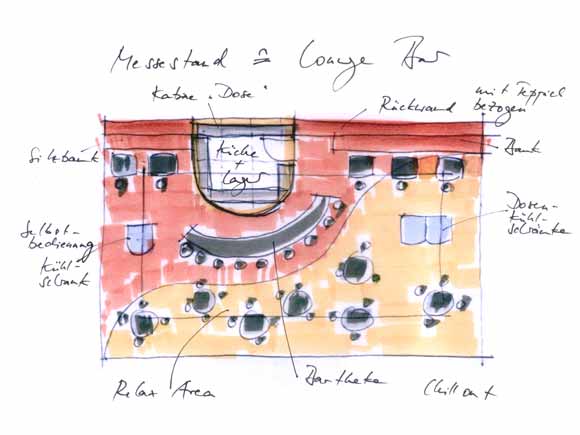 Messestand ≙ Lounge Bar
Kabine „Dose“
Rückwand mit Teppich
bezogen
Sitzbank
Küche
+
Lager
Bank
Selbst-
bedienung
Kühl-
schrank
Dosen-
Kühl-
schränke
Relax Area
Bartheke
Chill out